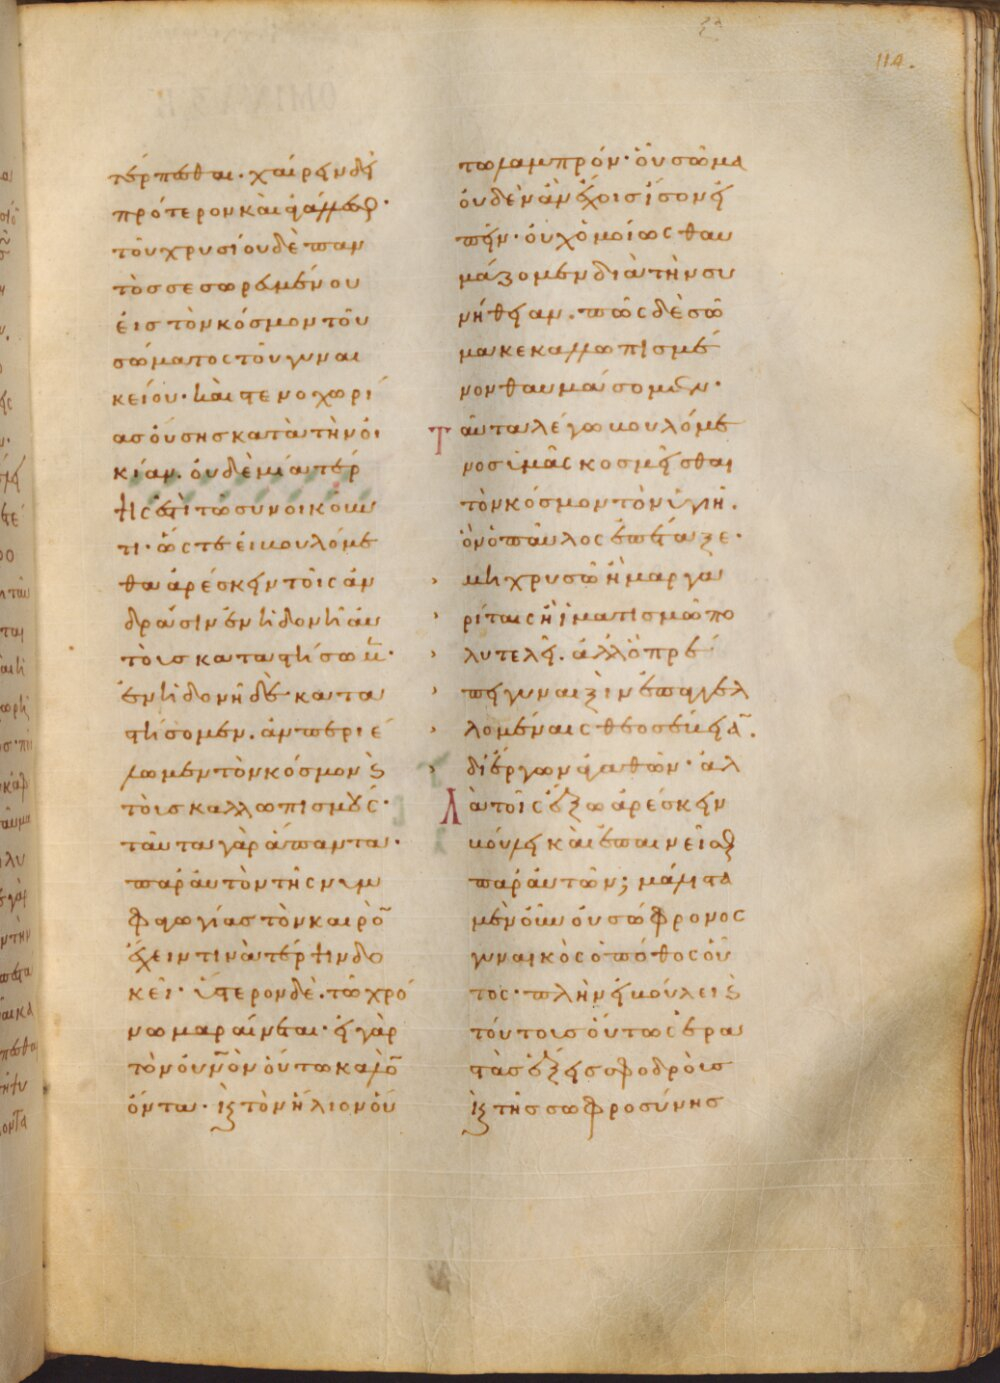 114.
τέρπεσθαι· χαίρειν δὲ
πρότερον καὶ ἀγάλλεσθαι·
τοῦ χρυσίου δὲ παν
τὸς σεσωρευμένου
εἰς τὸν κόσμον τοῦ
σώματος τοῦ γυναι
κείου· καὶ στενοχωρί
ας οὔσης κατὰ τὴν οἰ
κίαν. οὐδὲ μία τέρ
ψις ἐστὶ τῶ συνοικοῦν
τι· ὥστε εἰ βουλόμε
θα ἀρέσκειν τοῖς ἀν
δράσιν ἐν ἡδονῆ αὐ
τοὺς καταστήσωμεν·
ἐν ἡδονῆ δὲ κατα
στήσομεν. ἂν περιέ
λωμεν τὸν κόσμον καὶ
τοὺς καλλωπισμούς·
ταῦτα γὰρ ἅπαντα·
παρ' αὐτὸν τῆς νυμ
φαγωγίας τὸν καιρὸν
ἔχειν τινὰ τέρψιν δο
κεῖ· ὕστερον δὲ. τῶ χρό
νω μαραίνεται· εἰ γὰρ
τὸν οὐρανὸν οὕτω καλὸν
ὄντα· καὶ τὸν ἥλιον οὕ
τω λαμπρόν· ὃν σῶμα
οὐδὲν ἂν ἔχοις ἴσον εἰ
πεῖν· οὐχ ὁμοίως θαυ
μάζομεν διὰ τὴν συ
νήθειαν. πῶς δὲ σῶ
μα κεκαλλωπισμέ
νον θαυμάσομεν·
Ταῦτα λέγω βουλόμε
νος ὑμᾶς κοσμεῖσθαι
τὸν κόσμον τὸν ὑγιῆ.
ὃν ὁ παῦλος ἐπέταξε·
μὴ χρυσῶ ἢ μαργα
ρίταις ἢ ἱματισμῶ πο
λυτελεῖ. ἀλλ' ὃ πρέ
πει γυναιξὶν ἐπαγγελ
λομέναις θεοσέβειαν.
δι' ἔργων ἀγαθῶν· ἀλ
λὰ τοῖς ἔξω ἀρέσκειν
βούλει καὶ ἐπαινεῖσθαι
παρ' αὐτῶν; μάλιστα
μὲν οὖν οὐ σώφρονος
γυναικὸς ὁ πόθος οὗ
τος· πλὴν εἰ βούλει καὶ
τούτους οὕτως ἐρα
στὰς ἕξεις σφοδροὺς
καὶ τῆς σωφροσύνης